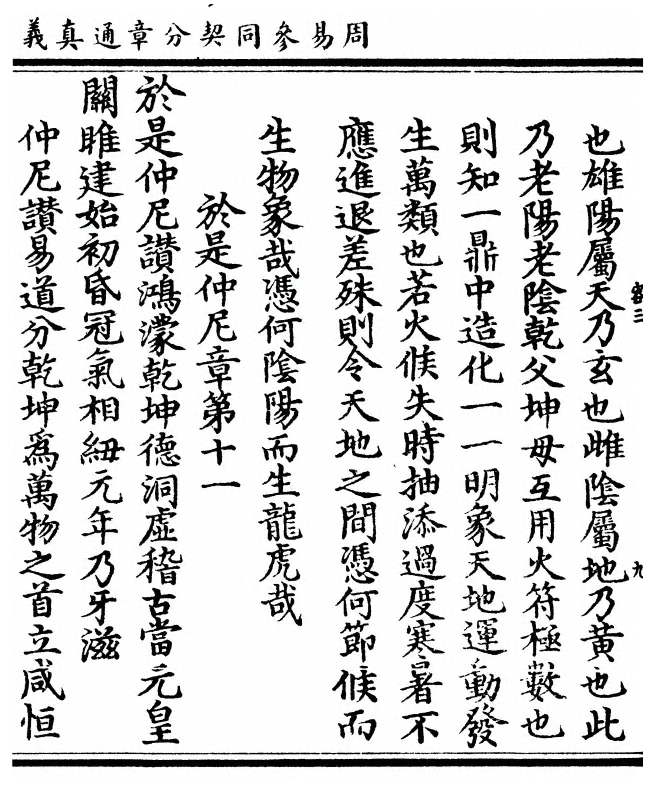 周易參同契分章通真義
卷三
九
也雄陽屬天乃玄也雌陰屬地乃黄也此
乃老陽老陰乾父坤母互用火符極數也
則知一鼎中造化一一明象天地運動發
生萬類也若火候失時抽添過度寒暑不
應進退差殊則令天地之間憑何節候而
生物象哉憑何陰陽而生龍虎哉
於是仲尼章第十一
於是仲尼讃鴻濛乾坤德洞虛稽古當元皇
關雎建始初昏冠氣相紐元年乃牙滋
仲尼讃易道分乾坤爲萬物之首立咸恒